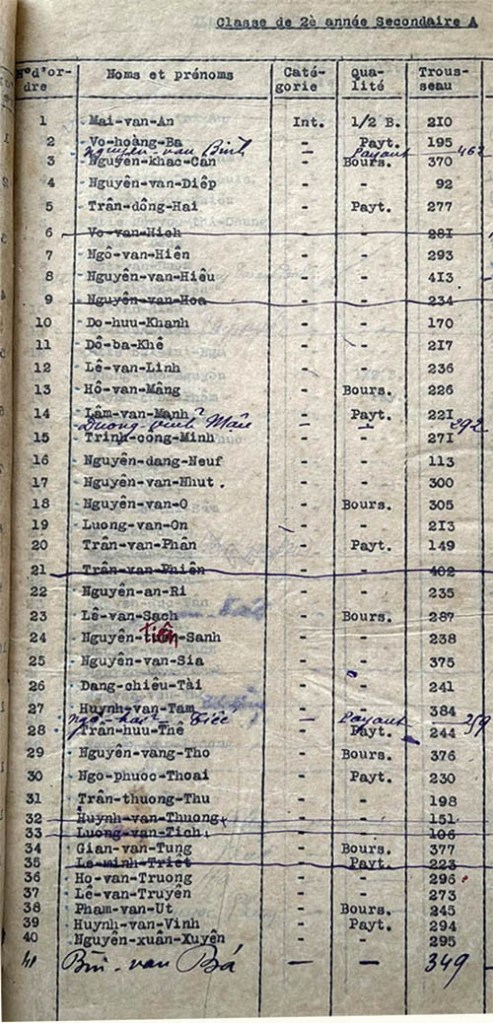 Classe de 2è année Secondaire A
N°d'or- Noms et prénoms Caté- Qua- Trous-
dre gorie lité seau
1 Mai-van-An Int. 1/2 B. 210
2 Vo-hoàng-Ba - Payt. 195
Nguyên-van Binh - Payant 462
3 Nguyên-khac-Cân - Bours. 370
4 Nguyên-van-Diêp - - 92
5 Trân-dông-Hai - Payt. 277
6 Vo-van-Hich - - 281
7 Ngô-van-Hiên - - 293
8 Nguyên-van-Hiêu - - 413
9 Nguyên-van-Hoa - - 234
10 Do-huu-Khanh - - 170
11 Dô-ba-Khê - - 217
12 Lê-van-Linh - - 236
13 Hô-van-Mâng - Bours. 226
14 Lâm-van-Manh - Payt. 221
Duong Mâu - - 292
15 Trinh-công-Minh - - 271
16 Nguyên-dang-Neuf - - 113
17 Nguyên-van-Nhut. - - 300
18 Nguyên-van-O - Bours. 305
19 Luong-van-On - - 213
20 Trân-van-Phân - Payt. 149
21 Trân-van-Phiên - - 402
22 Nguyên-an-Ri - - 235
23 Lê-van-Sach - Bours. 287
24 Nguyên-tiên-Sanh - - 238
25 Nguyên-van-Sia - - 375
26 Dang-chiêu-Tài - - 241
27 Huynh-van-Tam - - 384
Ngô - Payant 259
28 Trân-huu-Thê - Payt. 244
29 Nguyên-vang-Tho - Bours. 376
30 Ngo-phuoc-Thoai - Payt. 230
31 Trân-thuong-Thu - - 198
32 Huynh-van-Thuong - - 151
33 Luong-van-Tich - - 106
34 Gian-van-Tung - Bours. 377
35 Lê-minh-Triêt - Payt. 223
36 Ho-van-Truong - - 296
37 Lê-van-Truyên - - 273
38 Pham-van-Ut - Bours. 245
39 Huynh-van-Vinh - Payt. 294
40 Nguyên-xuân-Xuyên - - 295
41 Bùi-van Bá - - 349